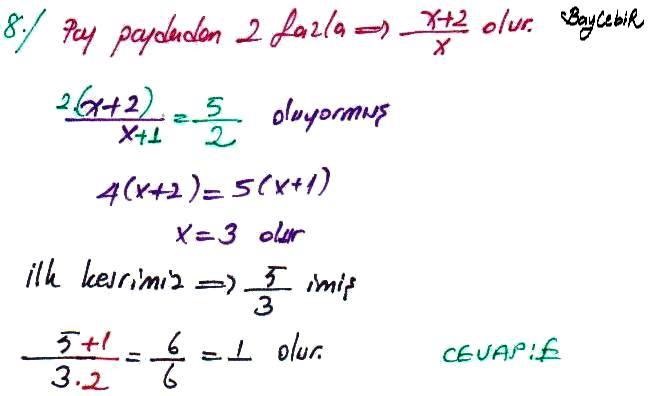 8./ Pay paydadan 2 fazla => x+2/x olur. BayCebiR
2.(x+2)/x+1 = 5/2 oluyormuş
4(x+2) = 5(x+1)
x = 3 olur
ilk kesrimiz => 5/3 imiş
5+1/3.2 = 6/6 = 1 olur.
CEVAP:E